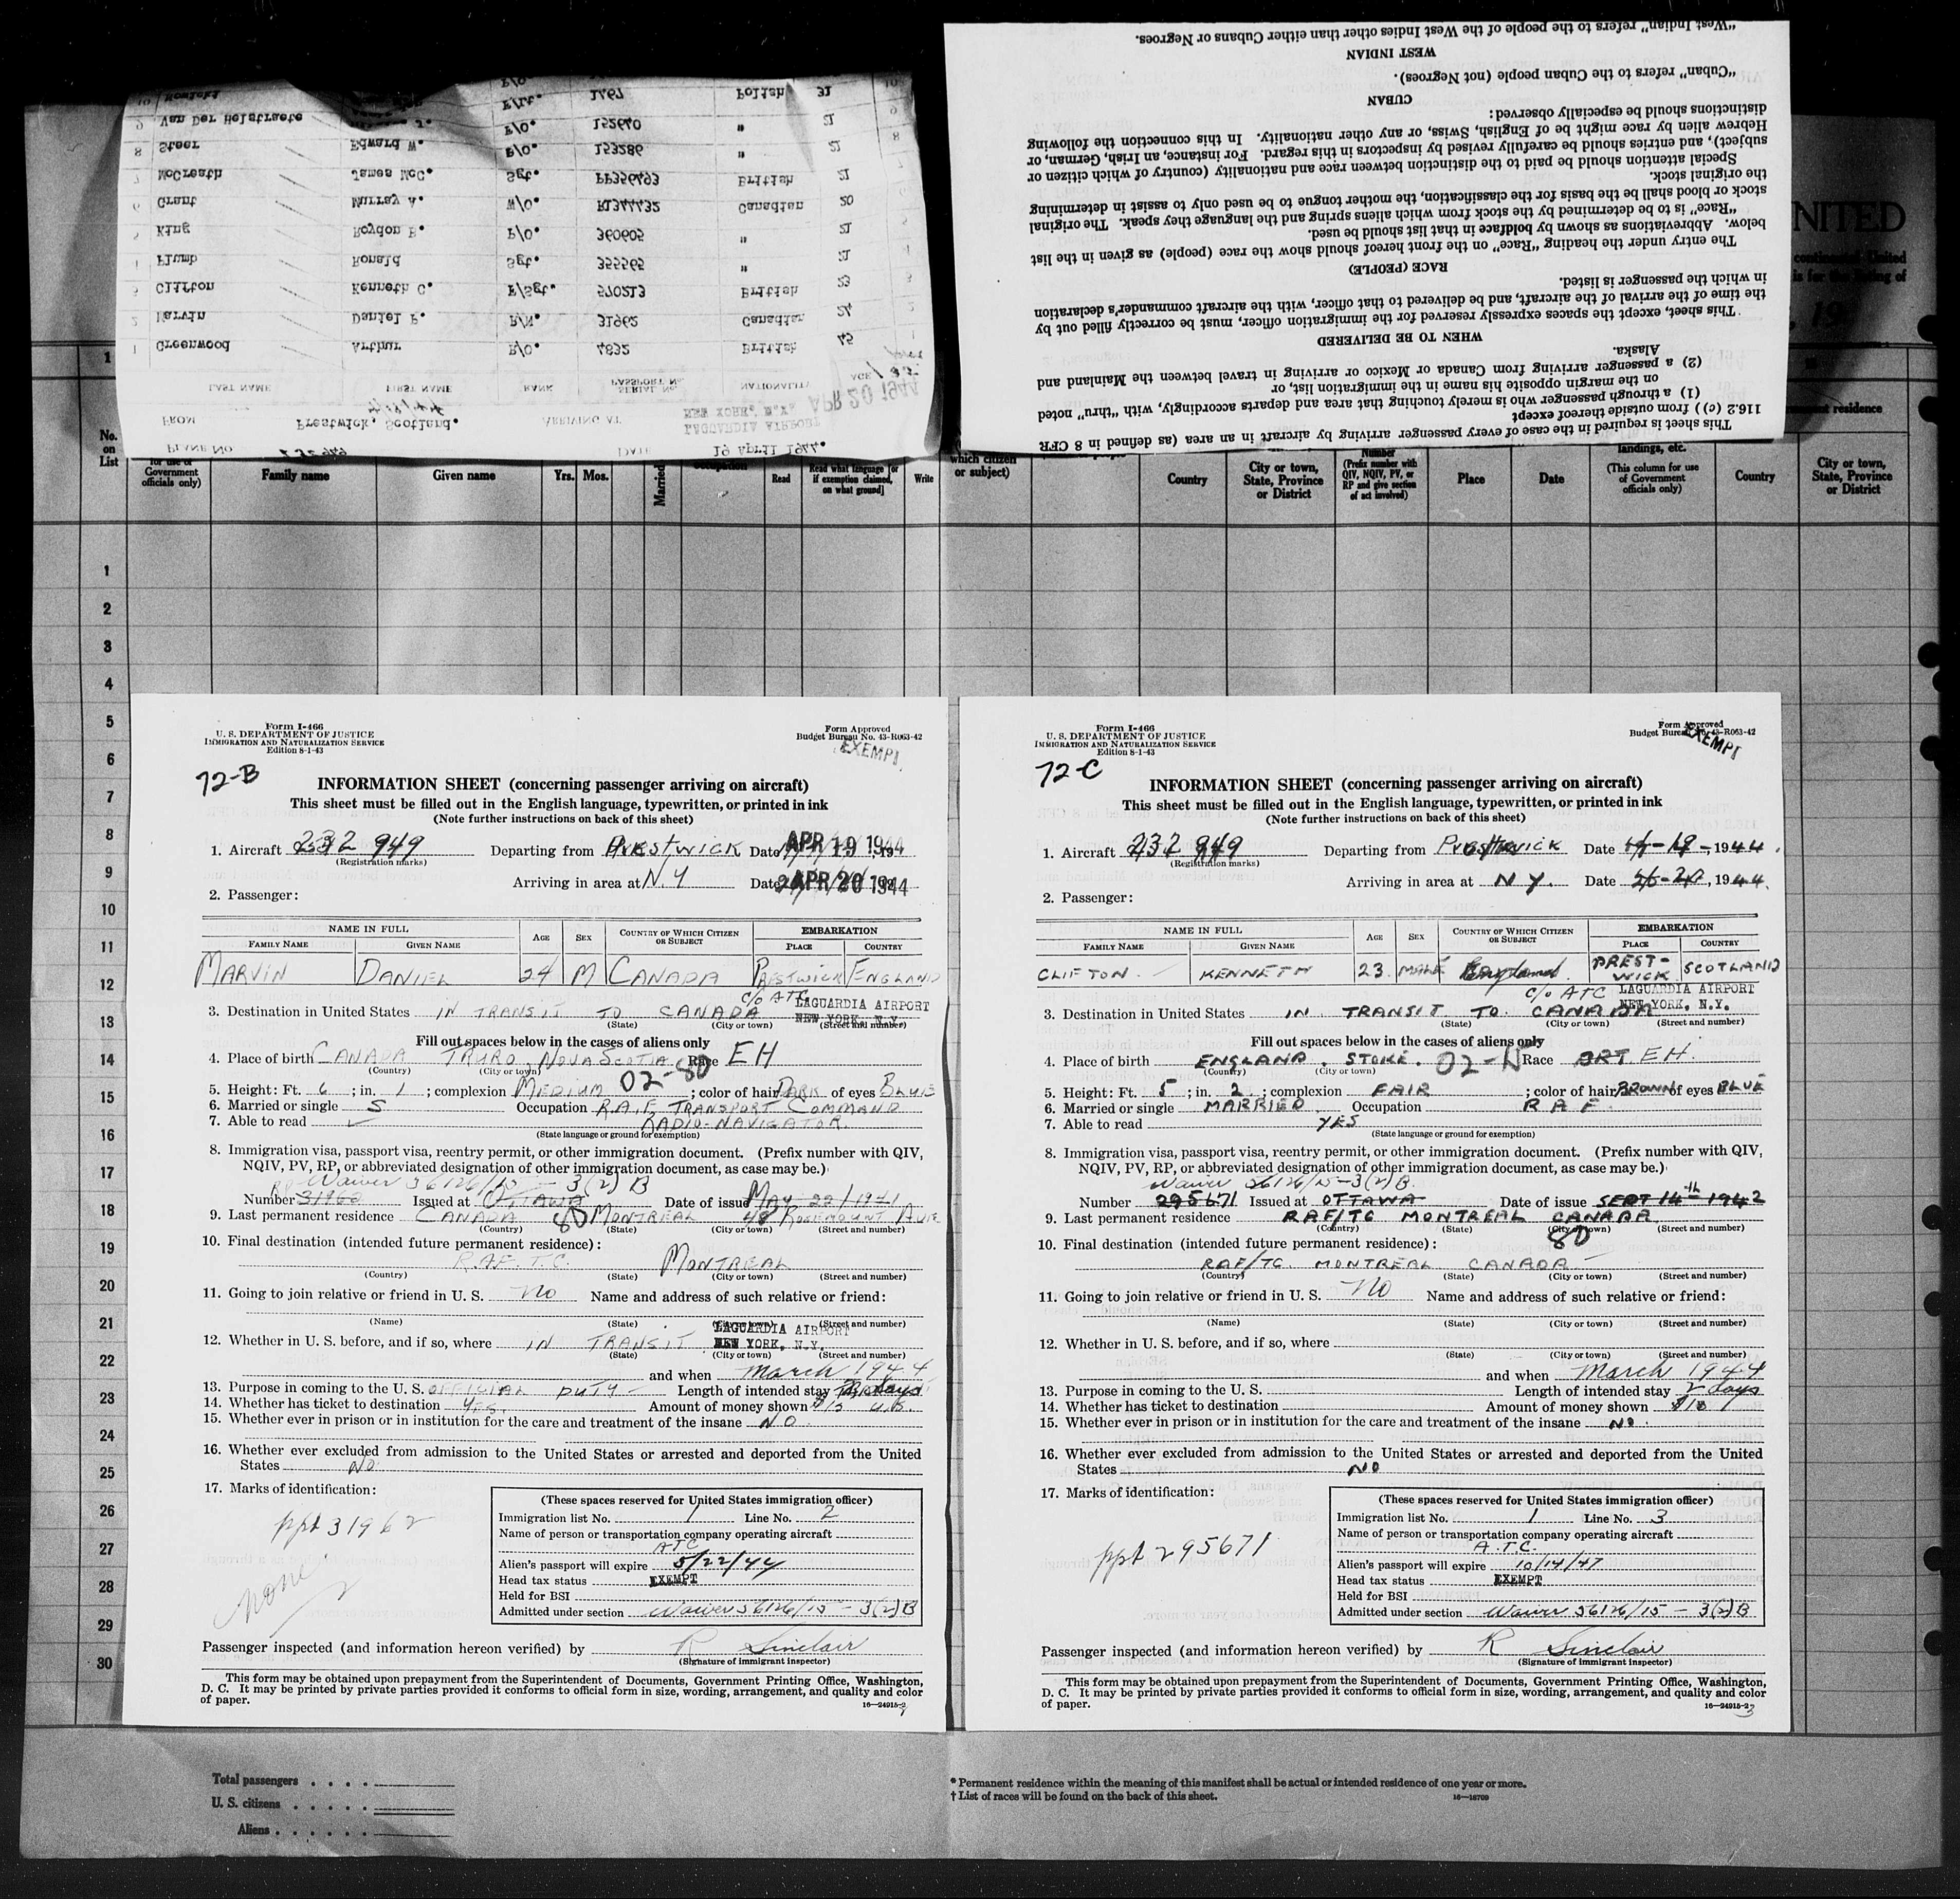 PLANE NO. 232949 DATE 19 April 1944.
FROM Prestwick, Scotland. ARRIVING AT LAGUARDIA AIRPORT
NEW YORK, N.Y. APR 20 1944
LAST NAME FIRST NAME RANK PASSPORT N. SERIAL No. NATIONALITY AGE
1 Greenwood Arthur R/O. 4832 British 45
2 Marvin Daniel F. R/N. 31962 Canadian 24
3 Clifton Kenneth C. F/Sgt. 570213 British 23
4 Plumb Ronald Sgt. 355565 " 21
5 King Roydon B. F/O. 360605 " 21
6 Grant Murray A. W/O. R1344432 Canadian 20
7 McCreath James McC. Sgt. PP356493 British 21
8 Steer Edward W. F/O. 153286 " 21
9 Van Der Helstraete J. F/O. 152640 " 21
10 F/Lt. 1467 Polish 31
This sheet is required in the case of every passenger arriving by aircraft in an area (as defined in 8 CFR
116.2 (c)) from outside thereof except
(1) a through passenger who is merely touching that area and departs accordingly, with "thru" noted
on the margin opposite his name in the immigration list, or
(2) a passenger arriving from Canada or Mexico or arriving in travel between the Mainland and
Alaska.
WHEN TO BE DELIVERED
This sheet, except the spaces expressly reserved for the immigration officer, must be correctly filled out by
the time of the arrival of the aircraft, and be delivered to that officer, with the aircraft commander's declaration
in which the passenger is listed.
RACE (PEOPLE)
The entry under the heading "Race" on the front hereof should show the race (people) as given in the list
below. Abbreviations as shown by boldface in that list should be used.
"Race" is to be determined by the stock from which aliens spring and the language they speak. The original
stock or blood shall be the basis for the classification, the mother tongue to be used only to assist in determining
the original stock.
Special attention should be paid to the distinction between race and nationality (country of which citizen or
subject), and entries should be carefully revised by inspectors in this regard. For instance, an Irish, German, or
Hebrew alien by race might be of English, Swiss, or any other nationality. In this connection the following
distinctions should be especially observed:
CUBAN
"Cuban" refers to the Cuban people (not Negroes).
WEST INDIAN
"West Indian" refers to the people of the West Indies other than either Cubans or Negroes.
NITED
continental United
is for the listing of
No. on List
for use of Government officials only) Family name Given name Yrs. Mos. Married Read Read what language [or if exemption claimed, on what ground] Write which citizen or subject) Country City or town, State, Province or District Number (Prefix number with QIV, NQIV, PV, or RP and give section of act involved) Place Date landings, etc. (This column for use of Government officials only) Country City or town, State, Province or District
1
2
3
4
5
6
7
8
9
10
11
12
13
14
15
16
17
18
19
20
21
22
23
24
25
26
27
28
29
30
Form I-466
U. S. DEPARTMENT OF JUSTICE
IMMIGRATION AND NATURALIZATION SERVICE
Edition 8-1-43
Form Approved
Budget Bureau No. 43-R063-42
EXEMPT
72-B
INFORMATION SHEET (concerning passenger arriving on aircraft)
This sheet must be filled out in the English language, typewritten, or printed in ink
(Note further instructions on back of this sheet)
1. Aircraft 232 949 Departing from PRESTWICK Date APR 19 1944
(Registration marks)
Arriving in area at N.Y Date APR 20 1944
2. Passenger:
NAME IN FULL AGE SEX COUNTRY OF WHICH CITIZEN OR SUBJECT EMBARKATION
FAMILY NAME GIVEN NAME PLACE COUNTRY
MARVIN DANIEL 24 M CANADA PRESTWICK ENGLAND
c/o ATC LAGUARDIA AIRPORT
3. Destination in United States IN TRANSIT TO CANADA NEW YORK, N.Y.
(State) (City or town) (Street and number)
Fill out spaces below in the cases of aliens only
4. Place of birth CANADA TRURO, NOVA SCOTIA Race EH
(Country) (City or town) 02-80
5. Height: Ft. 6; in. 1; complexion MEDIUM; color of hair DARK of eyes BLUE
6. Married or single S Occupation R.A.F. TRANSPORT COMMAND
7. Able to read ✓ RADIO-NAVIGATOR.
(State language or ground for exemption)
8. Immigration visa, passport visa, reentry permit, or other immigration document. (Prefix number with QIV,
NQIV, PV, RP, or abbreviated designation of other immigration document, as case may be.)
Waiver 56126/15 - 3(2) B
Number 31962 Issued at OTTAWA Date of issue MAY 22/1941
9. Last permanent residence CANADA 80 MONTREAL 48 ROSEMOUNT AVE
(Country) (State) (City or town) (Street and number)
10. Final destination (intended future permanent residence):
R.A.F. T.C. MONTREAL
(Country) (State) (City or town) (Street and number)
11. Going to join relative or friend in U. S. No Name and address of such relative or friend:
(Name) (State) (City or town) (Street and number)
LAGUARDIA AIRPORT
12. Whether in U. S. before, and if so, where IN TRANSIT NEW YORK, N.Y.
(State) (City or town) (Street and number)
and when March 1944
13. Purpose in coming to the U. S. OFFICIAL DUTY - Length of intended stay days
14. Whether has ticket to destination YES. Amount of money shown $15 U.S.
15. Whether ever in prison or in institution for the care and treatment of the insane NO
16. Whether ever excluded from admission to the United States or arrested and deported from the United
States NO
17. Marks of identification:
ppt 31962
none
(These spaces reserved for United States immigration officer)
Immigration list No. 1 Line No. 2
Name of person or transportation company operating aircraft
ATC
Alien's passport will expire 5/22/44
Head tax status EXEMPT
Held for BSI
Admitted under section Waiver 56126/15 - 3(2)B
Passenger inspected (and information hereon verified) by R Sinclair
(Signature of immigrant inspector)
This form may be obtained upon prepayment from the Superintendent of Documents, Government Printing Office, Washington,
D. C. It may be printed by private parties provided it conforms to official form in size, wording, arrangement, and quality and color
of paper.
16—24915-2
Form I-466
U. S. DEPARTMENT OF JUSTICE
IMMIGRATION AND NATURALIZATION SERVICE
Edition 8-1-43
Form Approved
Budget Bureau No. 43-R063-42
EXEMPT
72-C
INFORMATION SHEET (concerning passenger arriving on aircraft)
This sheet must be filled out in the English language, typewritten, or printed in ink
(Note further instructions on back of this sheet)
1. Aircraft 232 949 Departing from PRESTWICK Date 4-19-, 1944.
(Registration marks)
Arriving in area at N Y. Date 1944.
2. Passenger:
NAME IN FULL AGE SEX COUNTRY OF WHICH CITIZEN OR SUBJECT EMBARKATION
FAMILY NAME GIVEN NAME PLACE COUNTRY
CLIFTON KENNETH 23 MALE England PREST-WICK SCOTLAND
c/o ATC LAGUARDIA AIRPORT
NEW YORK, N.Y.
3. Destination in United States IN TRANSIT TO CANADA
(State) (City or town) (Street and number)
Fill out spaces below in the cases of aliens only
4. Place of birth ENGLAND. STOKE. 02- Race EH.
(Country) (City or town)
5. Height: Ft. 5; in. 2; complexion FAIR; color of hair BROWN of eyes BLUE
6. Married or single MARRIED Occupation R A F.
7. Able to read YES
(State language or ground for exemption)
8. Immigration visa, passport visa, reentry permit, or other immigration document. (Prefix number with QIV,
NQIV, PV, RP, or abbreviated designation of other immigration document, as case may be.)
Waiver 56126/15-3(2)B.
Number 295671 Issued at OTTAWA Date of issue SEPT 14th 1942
9. Last permanent residence RAF/TC MONTREAL CANADA
(Country) (State) (City or town) (Street and number)
10. Final destination (intended future permanent residence): 80
RAF/TC. MONTREAL CANADA
(Country) (State) (City or town) (Street and number)
11. Going to join relative or friend in U. S. No Name and address of such relative or friend:
(Name) (State) (City or town) (Street and number)
12. Whether in U. S. before, and if so, where
(State) (City or town) (Street and number)
and when March 1944
13. Purpose in coming to the U. S. Length of intended stay 2 days
14. Whether has ticket to destination Amount of money shown $10
15. Whether ever in prison or in institution for the care and treatment of the insane NO.
16. Whether ever excluded from admission to the United States or arrested and deported from the United
States NO
17. Marks of identification:
ppt 295671
(These spaces reserved for United States immigration officer)
Immigration list No. 1 Line No. 3
Name of person or transportation company operating aircraft
A.T.C.
Alien's passport will expire 10/14/47
Head tax status EXEMPT
Held for BSI
Admitted under section Waiver 56126/15 - 3(2)B
Passenger inspected (and information hereon verified) by R Sinclair
(Signature of immigrant inspector)
This form may be obtained upon prepayment from the Superintendent of Documents, Government Printing Office, Washington,
D. C. It may be printed by private parties provided it conforms to official form in size, wording, arrangement, and quality and color
of paper.
16—24915-2
3
Total passengers . . . .
U. S. citizens . . . . .
Aliens . . . . . .
* Permanent residence within the meaning of this manifest shall be actual or intended residence of one year or more.
† List of races will be found on the back of this sheet.
16—18709